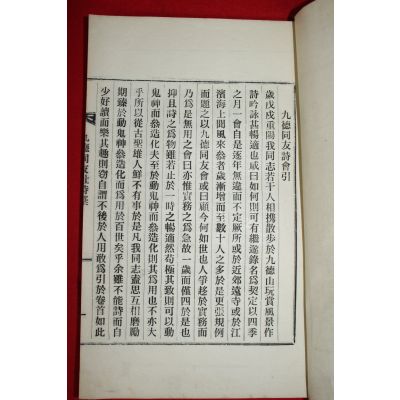 九德同友詩會引
歲戊戌重陽我同志若干人相携散步於九德山玩賞風景作
詩吟詠其暢適也咸曰如何則可有繼遂錄名爲契定以四季
之月一會自是逐年無違而不定厥所或於近郊遠寺或於江
濱海上聞風來參者歲漸增而至數十人之多於是更張規例
而題之以九德同友會或曰顧今何如世也人爭趍於實務而
乃爲是無用之會耶余曰
抑且詩之爲物雖若止於一時之暢適然苟極其致則可以動
鬼神而叅造化夫至於動鬼神而叅造化則其爲用也不亦大
乎所以從古聖雄人鮮不有事於是凡我同志盍思互相磨勵
期臻於動鬼神叅造化而爲用於百世矣乎余雖不能詩而自
少好讀而樂其趣則竊自謂不後於人用敢爲引於卷首如此
九德同友會詩集